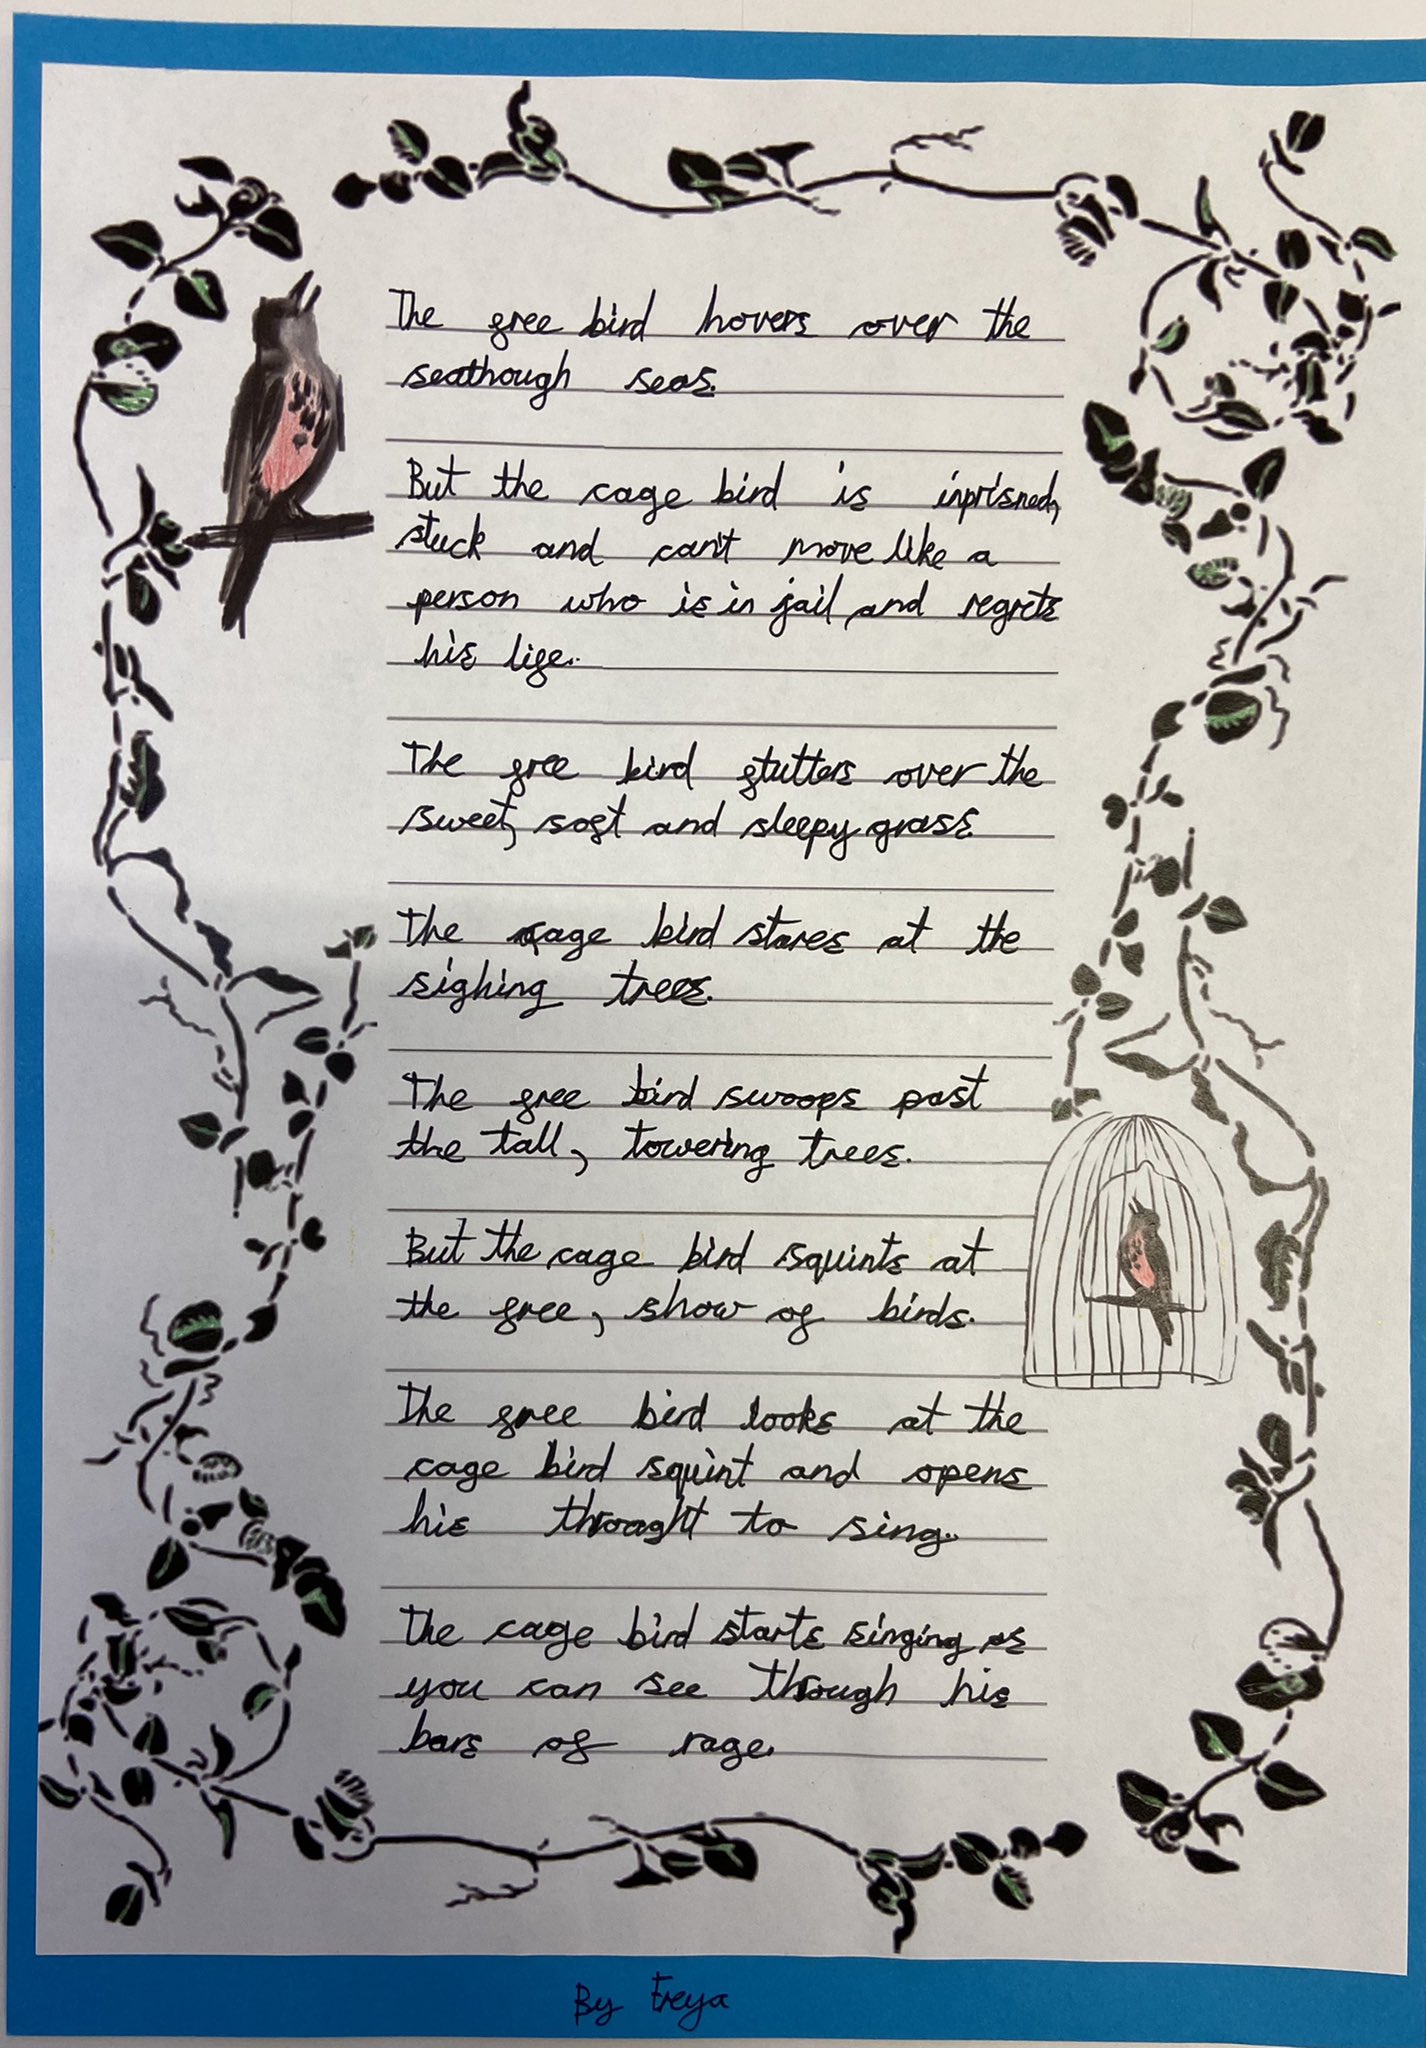 The free bird hovers over the
seathough seas.
But the cage bird is inprisned,
stuck and can't move like a
person who is in jail and regrets
his life..
The free bird stutters over the
sweet, soft and sleepy grass
The cage bird stares at the
sighing trees.
The free bird swoops past
the tall, towering trees.
But the cage bird squints at
the free, show of birds.
The free bird looks at the
cage bird squint and opens
his throaght to sing..
The cage bird starts singing as
you can see through his
bars of rage.
By Freya